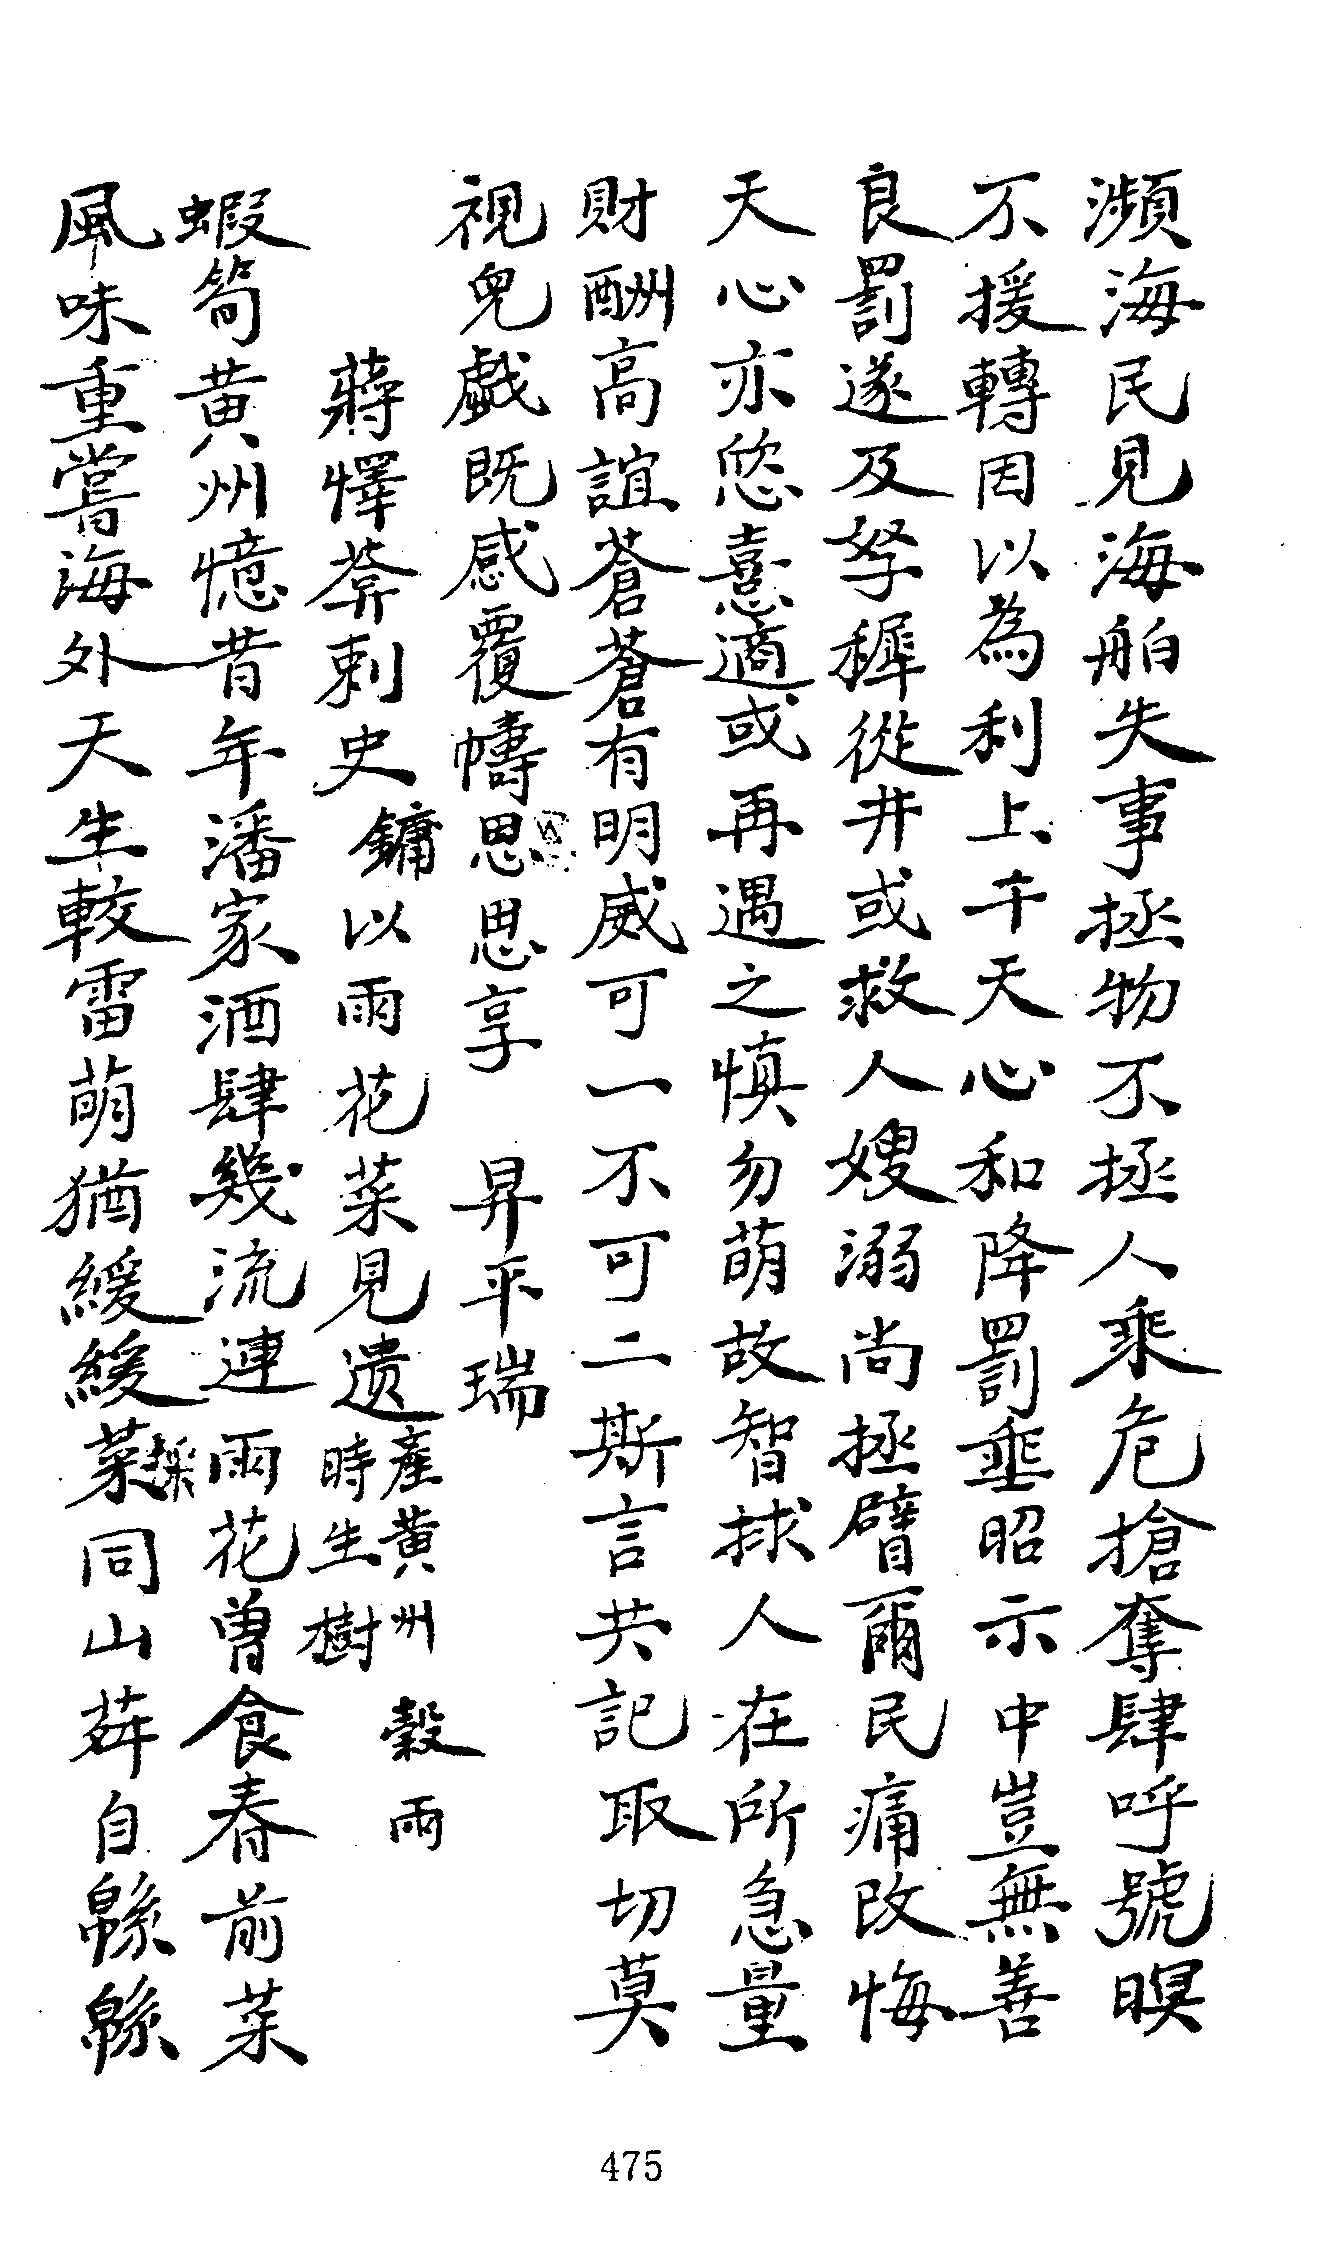 瀕海民見海舶失事拯物不拯人乘危搶奪肆呼號暝
不援轉因以為利上干天心和降罰垂昭示中豈無善
良罰遂及孥穉從井或救人嫂溺尚拯臂爾民痛改悔
天心亦慾憙適或再遇之慎勿萌故智捄人在所急量
財酬高誼蒼蒼有明威可一不可二斯言共記取切莫
視兒戲既感覆幬思思享　昇平瑞
蔣懌葊刺史鏞以雨花菜見遺產黃州穀雨
時生樹
蝦筍黃州憶昔年潘家酒肆幾流連雨花曾食春前菜
風味重嘗海外天生較雷萌猶緩緩菜採同山荈自緜緜
475